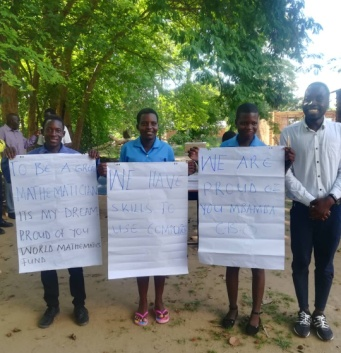 TO BE A GREAT
MATHEMATICIAN
IS MY DREAM
PROUD OF YOU
WORLD MATHEMATICS
FUND
WE HAVE
SKILLS TO
USE COMPUTER
WE ARE
PROUD OF
YOU